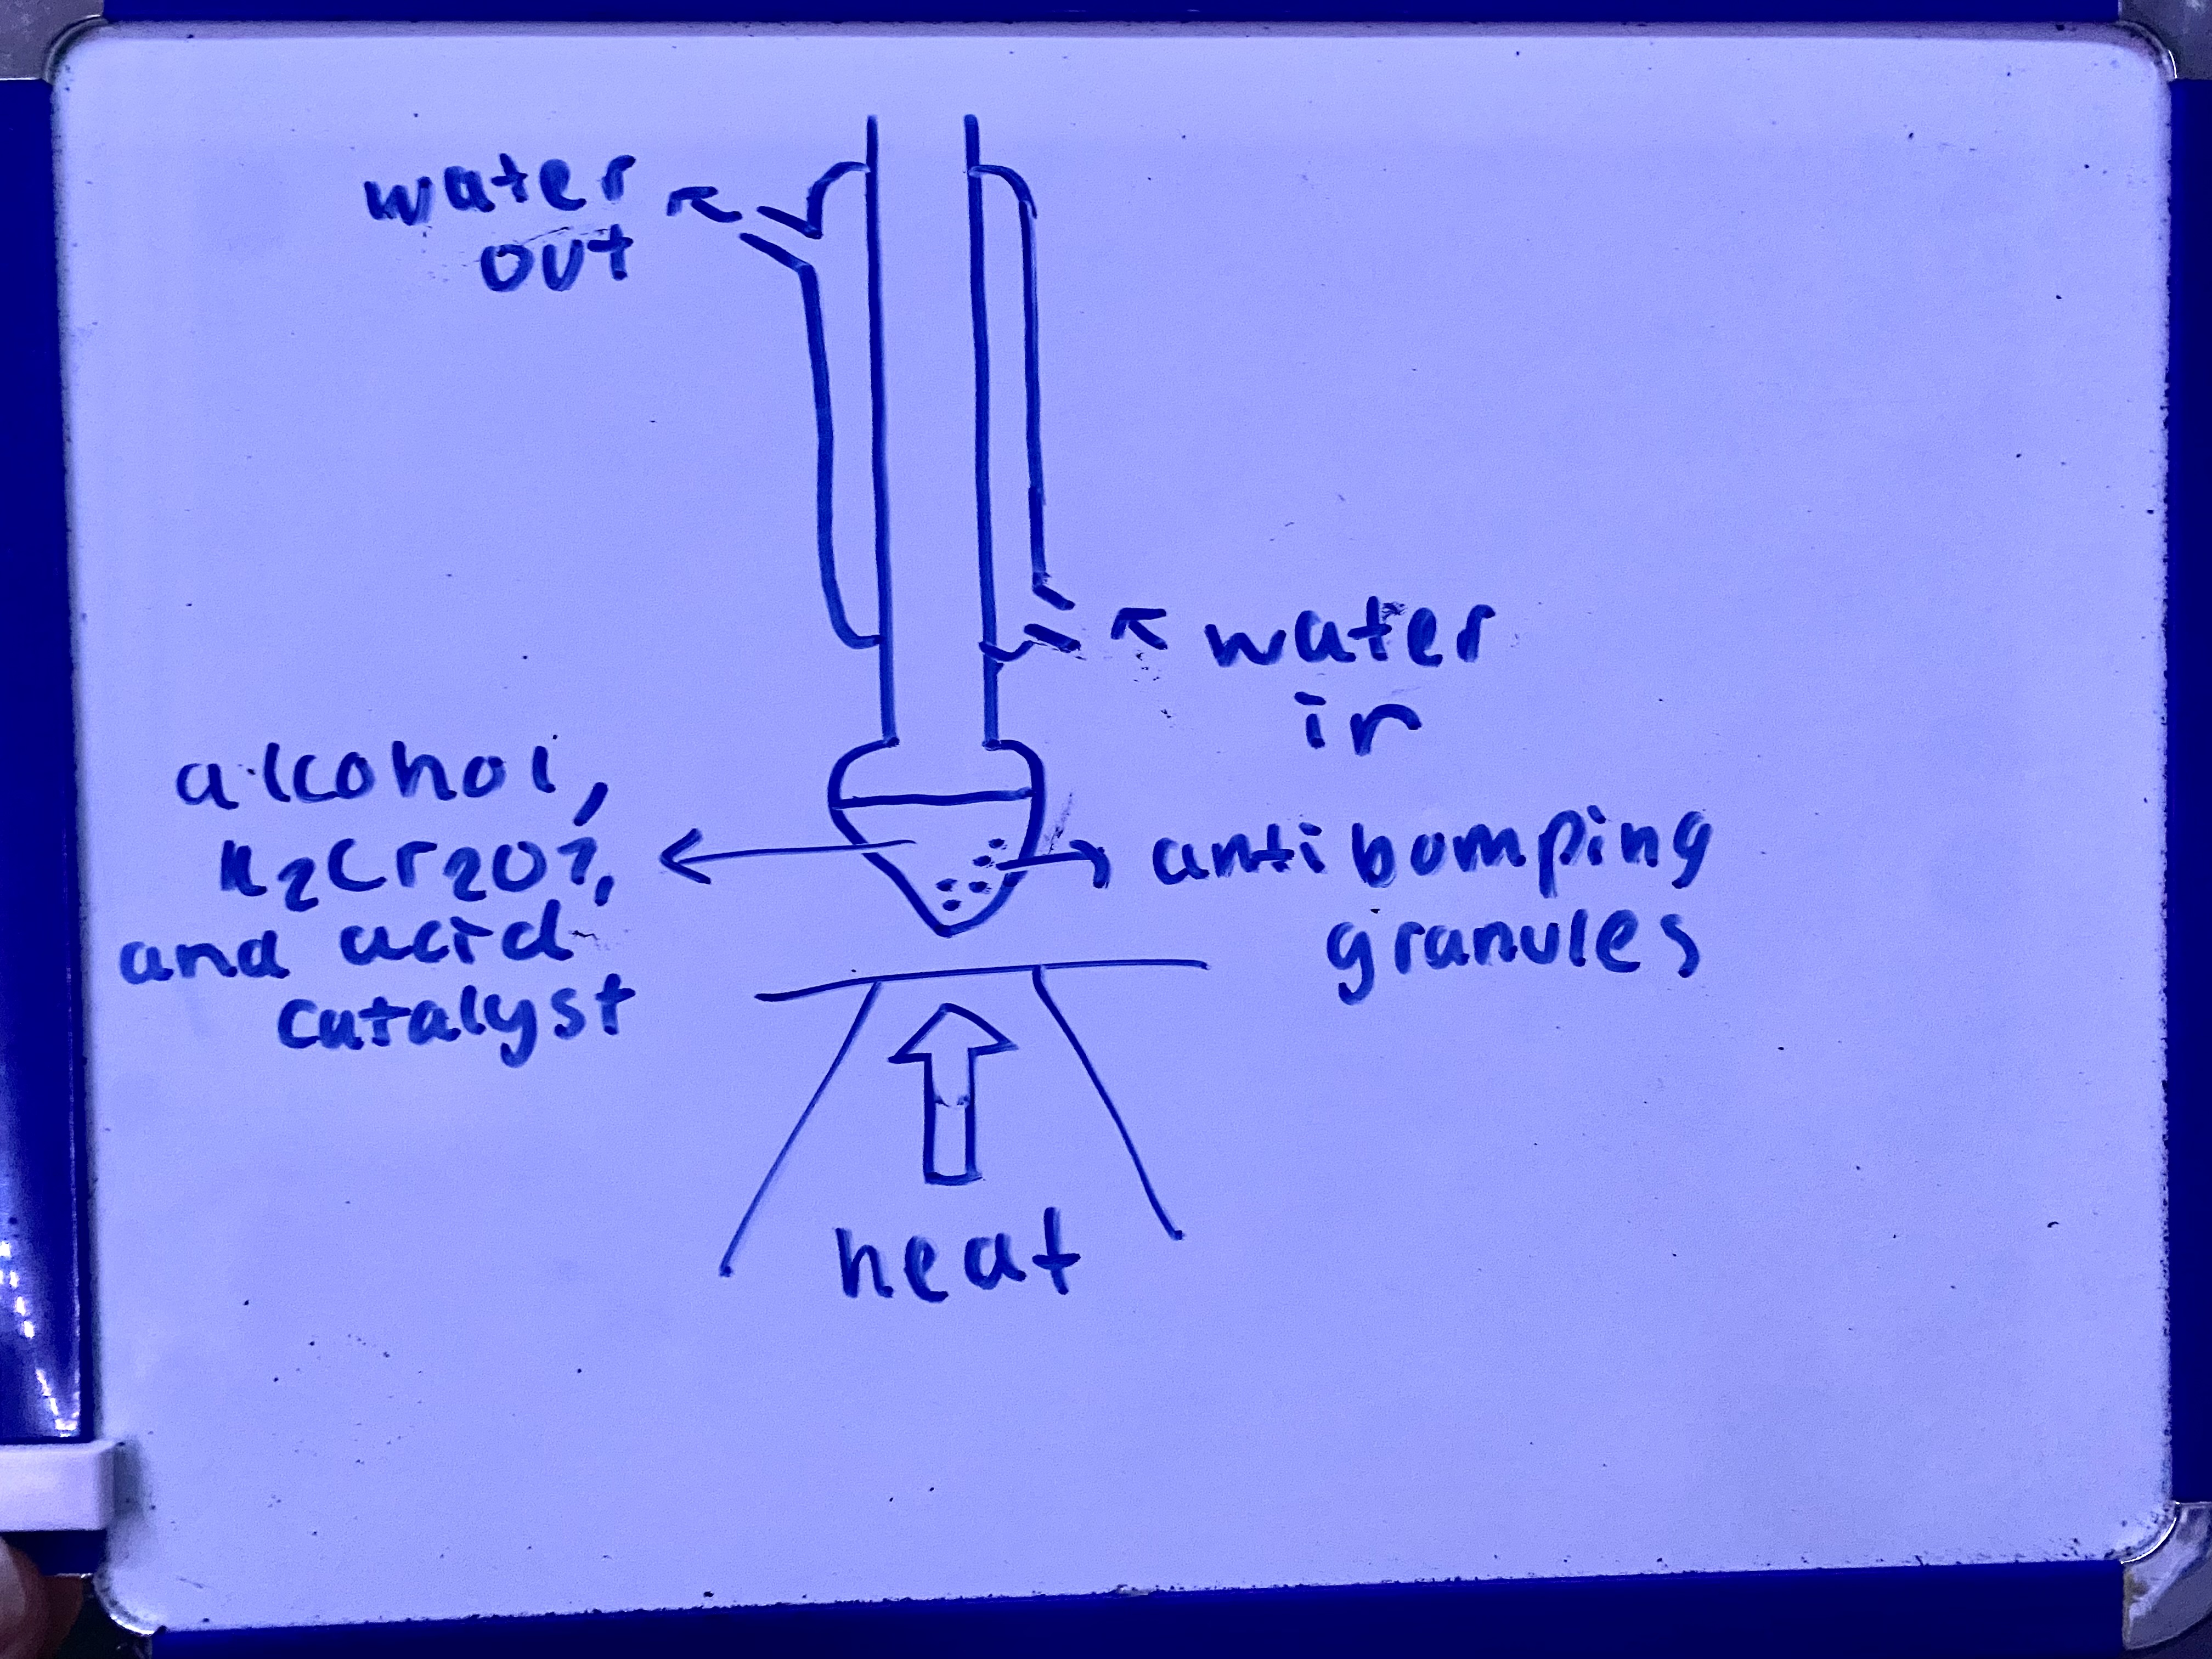 water
out
water
in
alcohol,
K2Cr2O7,
and acid
catalyst
antibumping
granules
heat